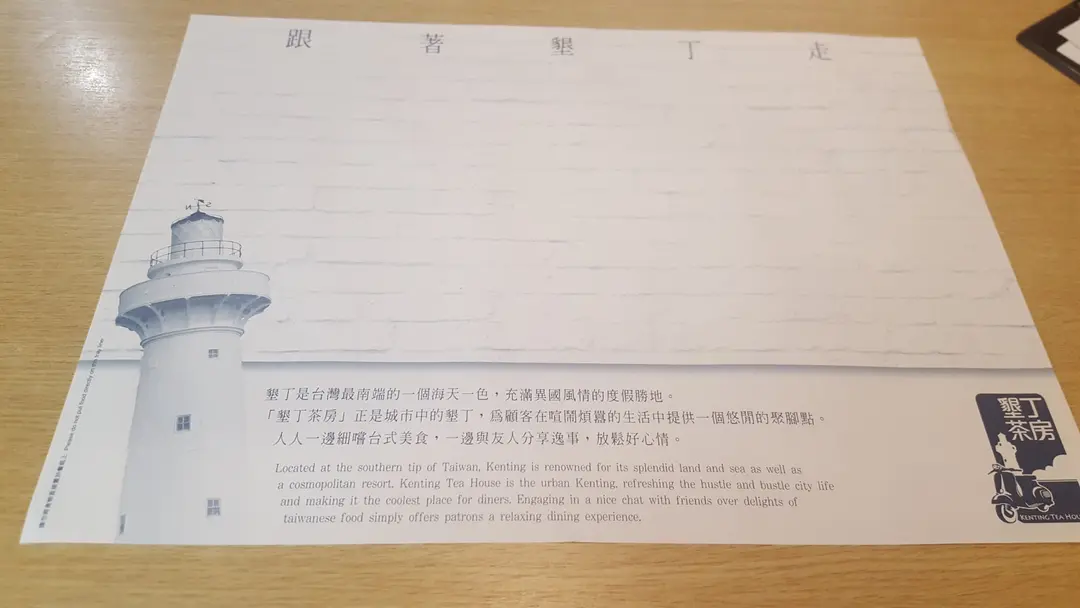 跟著墾丁走
墾丁是台灣最南端的一個海天一色，充滿異國風情的度假勝地。
「墾丁茶房」正是城市中的墾丁，為顧客在喧鬧煩囂的生活中提供一個悠閒的聚腳點。
人人一邊細嚐台式美食，一邊與友人分享逸事，放鬆好心情。
Located at the southern tip of Taiwan, Kenting is renowned for its splendid land and sea as well as
a cosmopolitan resort. Kenting Tea House is the urban Kenting, refreshing the hustle and bustle city life
and making it the coolest place for diners. Engaging in a nice chat with friends over delights of
taiwanese food simply offers patrons a relaxing dining experience.
墾丁
茶房
KENTING TEA HOU
Please do not put food directly on this tray liner